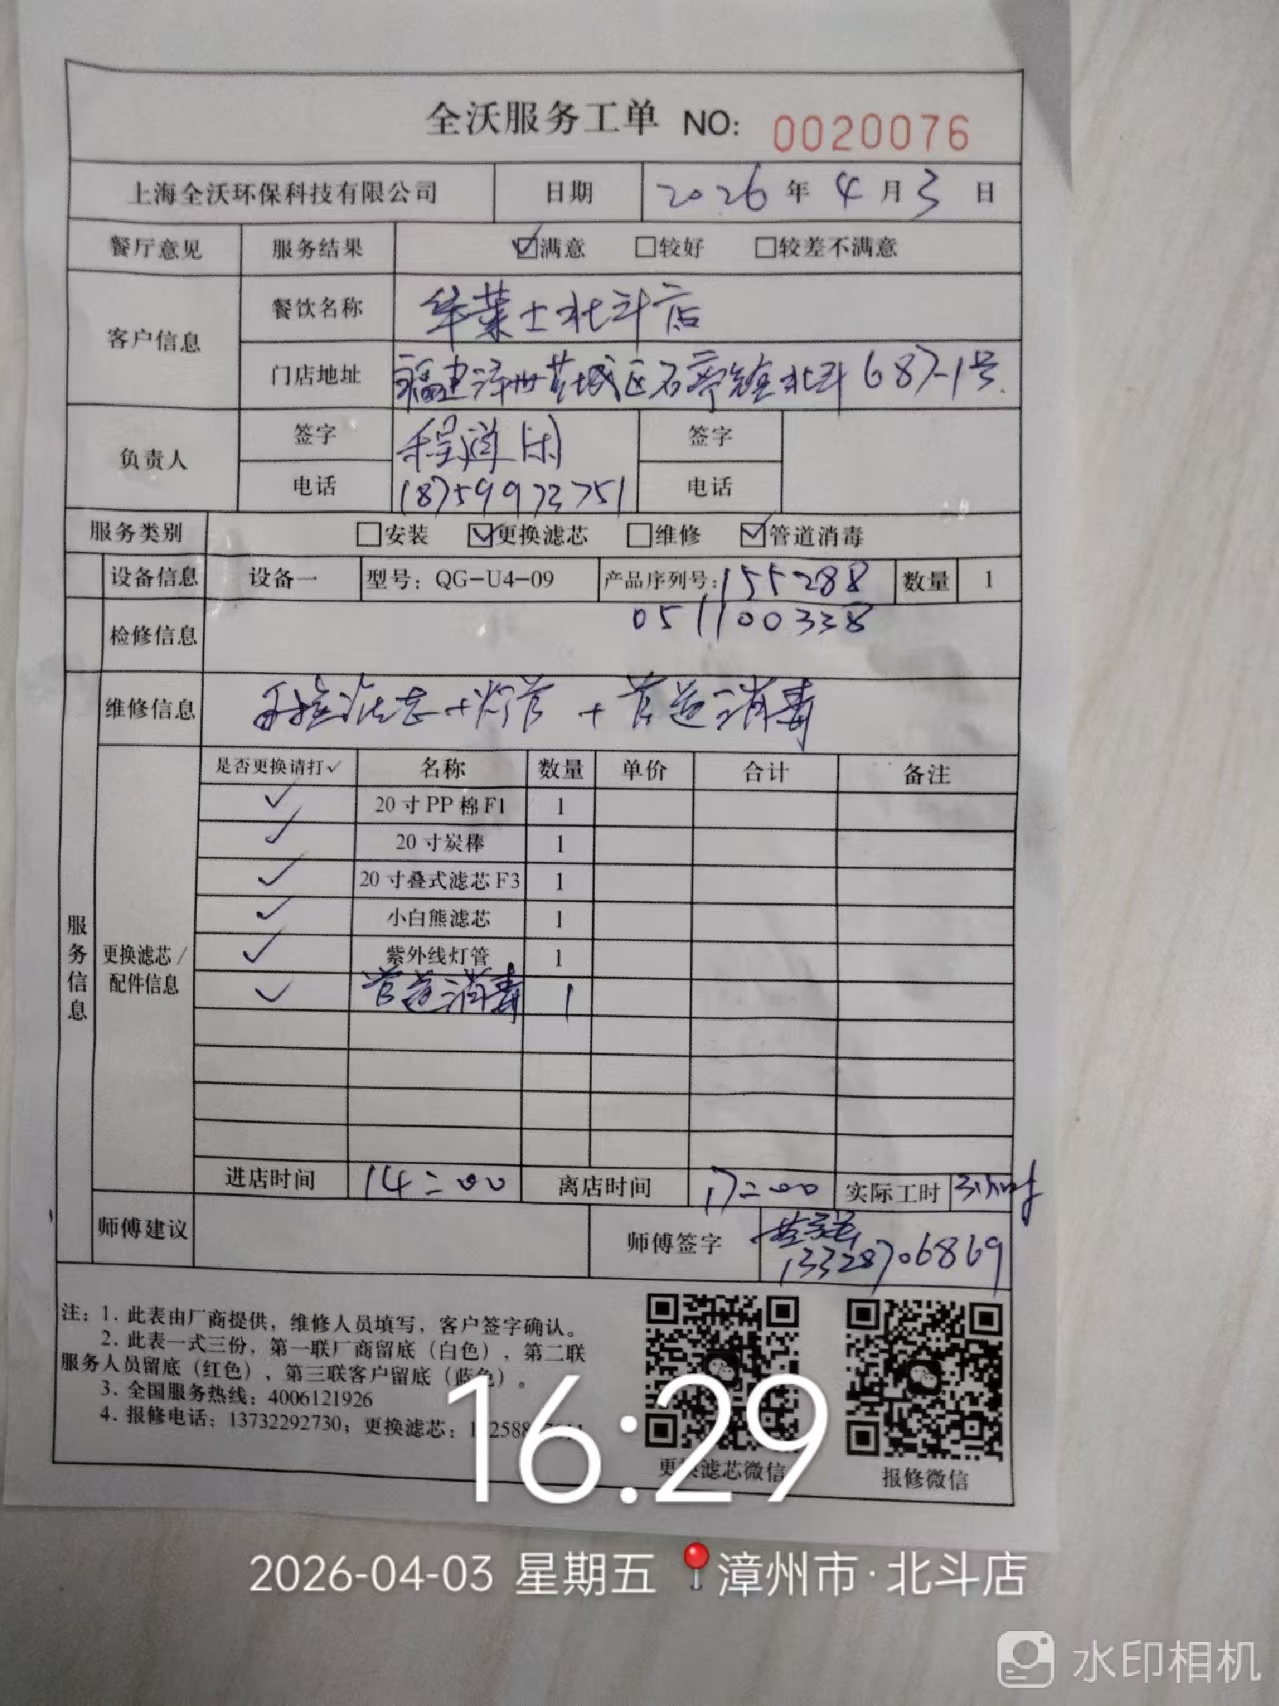 全沃服务工单 NO: 0020076
上海全沃环保科技有限公司 日期 2026年4月3日
餐厅意见 服务结果 ☑满意 □较好 □较差不满意
客户信息 餐饮名称 华莱士北斗店
门店地址 福建漳州芗城区石亭镇北斗687-1号
负责人 签字 签字
电话 18759973751 电话
服务类别 □安装 ☑更换滤芯 □维修 ☑管道消毒
设备信息 设备一 型号: QG-U4-09 产品序列号: 155288 数量 1
检修信息 051100338
维修信息 滤芯+灯管+管道消毒
是否更换请打✓ 名称 数量 单价 合计 备注
服务信息 更换滤芯/配件信息
✓ 20寸PP棉F1 1
✓ 20寸炭棒 1
✓ 20寸叠式滤芯F3 1
✓ 小白熊滤芯 1
✓ 紫外线灯管 1
✓ 管道消毒 1
进店时间 14:00 离店时间 17:00 实际工时 3小时
师傅建议 师傅签字
13328706869
注: 1. 此表由厂商提供, 维修人员填写, 客户签字确认。
2. 此表一式三份, 第一联厂商留底(白色), 第二联
服务人员留底(红色), 第三联客户留底(蓝色)。
3. 全国服务热线: 4006121926
4. 报修电话: 13732292730; 更换滤芯:
更换滤芯微信 报修微信
16:29
2026-04-03 星期五 漳州市·北斗店
水印相机